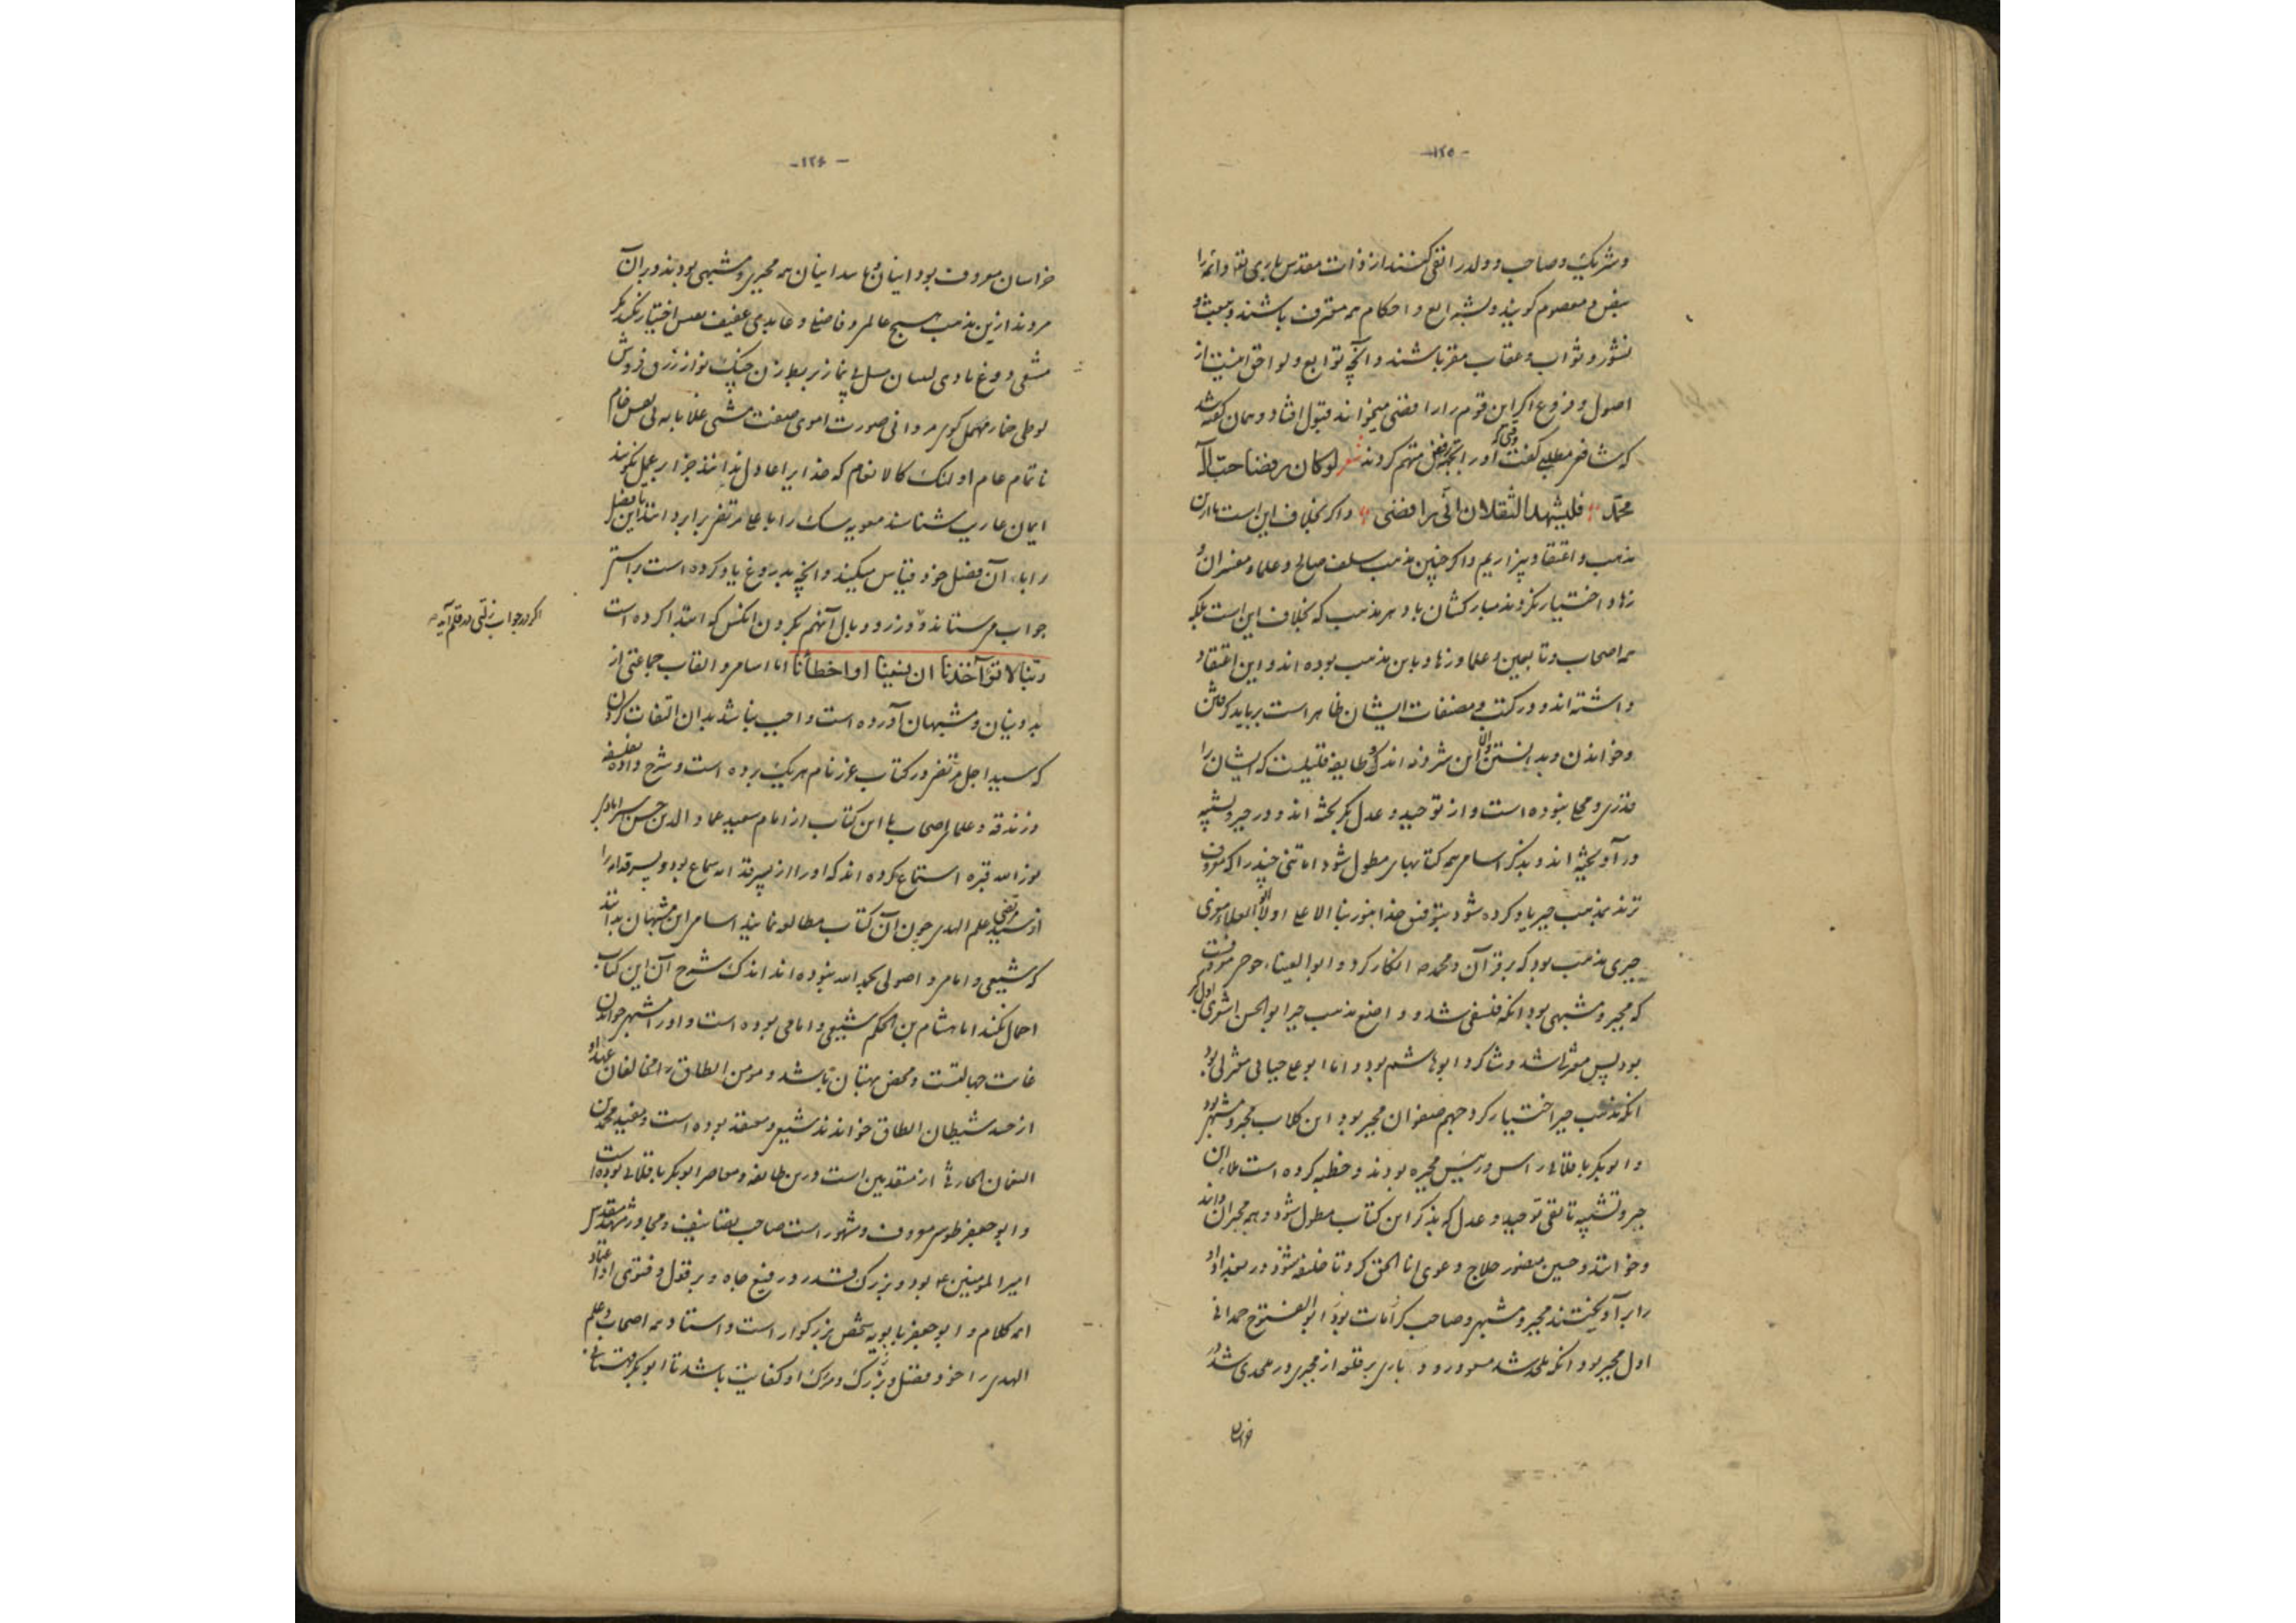 -۱۲۵-
و شریک و صاحب و ولد را نفی کنند از ذات مقدس باری تعا و ائمه را
بنص و معصوم گویند و بشرایع و احکام همه معترف باشند و ببعث و
نشور و ثواب و عقاب مقر باشند و آنچه توابع و لواحق اینست از
اصول و فروع اگر این قوم را رافضی میخوانند قبول افتاد و همان گفته شد
که شافعی مطلبی گفت وقتی که او را برفض متهم کردند شعر لو کان رفضا حب آل
محمد فلیشهد الثقلان انی رافضی و اگر بخلاف این است ما ازین
مذهب و اعتقاد بیزاریم و اگر چنین مذهب سلف صالح و علما و مفسران و
زهاد اختیار نکردند مبارکشان باد هر مذهب که بخلاف این است بلکه
همه اصحاب و تابعین و علما و زهاد باین مذهب بوده اند و این اعتقاد
داشته اند و در کتب و مصنفات ایشان ظاهر است برباید گرفتن
و خواندن و بدانستن و الا این شرذمه اندک و طایفه قلیلست که ایشان را
قدری و محابا نبوده است و از توحید و عدل بگریخته اند و در جبر و تشبیه
درآویخته اند و بذکر اسامی همه کتابها مطول شود اما تنی چند را که معروف
ترند بمذهب جبر یاد کرده شود بتوفیق خدا بنور بنا الاعلی اولا ابوالعلاء معری
جبری مذهب بود که بر قرآن و محمد ص انکار کرد و ابوالعیناء خود معروفست
که مجبر و مشبهی بود آنکه فلسفی شد و واضع مذهب جبر ابوالحسن اشعری اول
بود پس معتزلی شد و شاگرد ابوهاشم بود و اما ابو علی جبایی معتزلی بود
آنکه مذهب جبر اختیار کرد جهم صفوان مجبر بود ابن کلاب مجبر و مشبهی بود
و ابوبکر باقلانی راس و رئیس مجبره بودند و خطبه کرده است
جبر و تشبیه تا نفی توحید و عدل که بذکر این کتاب مطول شود و همه مجبران دانند
و خوانند و حسین منصور حلاج دعوی انا الحق کرد تا خلیفه در بغداد او
را برآویختند مجبر و مشبهی و صاحب کرامات بود ابوالفتوح همدانی
اول مجبر بود آنکه ملحد شد مسعود زورابادی بر قلعه از مجبری در ملحدی شد و در
خراسان
-۱۲۶-
خراسان معروف بود اینان و مانند اینان همه مجبری و مشبهی بودند و بران
مردند ازین مذهب هیچ عالم و فاضل و عابدی عفیف نفس اختیار نکند مگر
مشتی دوغ بادی لسان سل بی نماز بربط زن چنگ نواز زرق فروش
لوطی خمار مهمل گوی مروانی صورت اموی صفت مشتی غلابا به بی نفس خام
ناتمام عام اولئک کالانعام که خدایرا عادل ندانند جز از بر عمل نگویند
ایمان عاریت شناسند معویه سگ را با علی مرتضی برابر دانند این فضل
را با آن فضل خود قیاس میکنند و آنچه بدروغ یاد کرده است براستی
جواب می ستاند و وزر و وبال آنهم بگردن آنکس که ابتدا کرده است
ربنا لا تؤاخذنا ان نسینا او اخطأنا اما اسامی و القاب جماعتی از
بددینان و مشبهان آورده است واجب نباشد بدان التفات کردن
که سید اجل مرتضی در کتاب غرر نام هر یک برده است و شرح داده بفلسفه
و زندقه و علماء اصحاب ما این کتاب از امام سعید عماد الدین حسن استرابادی
نور الله قبره استماع کرده اند که او را از پسر قدامه سماع بود و پسر قدامه را
از سید مرتضی علم الهدی چون آن کتاب مطالعه نمایند اسامی این مشبهان بدانند
که شیعی و امامی و اصولی بحمد الله نبوده اند اندک شرح آن این کتاب
احتمال نکند اما هشام بن الحکم شیعی و امامی بوده است و او را مشبهی خواندن
غایت جهالتست و محض بهتان باشد و مومن الطاق را مخالفان
از حسد شیطان الطاق خوانند شیعی و معتقد بوده است و مفید محمد بن
النعمان الحارثی از متقدمین است درین طایفه و معاصر ابوبکر باقلانی بوده است
و ابوجعفر طوسی معروف و مشهور است صاحب تصانیف و مجاور مشهد مقدس
امیر المومنین ع بود و بزرگ قدر و رفیع جاه و بر قول و فتوی او اعتماد
ائمه کلام و ابوجعفر بابویه شخص بزرگوار است و استاد همه اصحاب و علم
الهدی را خود فضل و بزرگ و ترک او کفایت باشد تا ابوبکر قهستانی
اگر در جواب زلتی در قلم آید